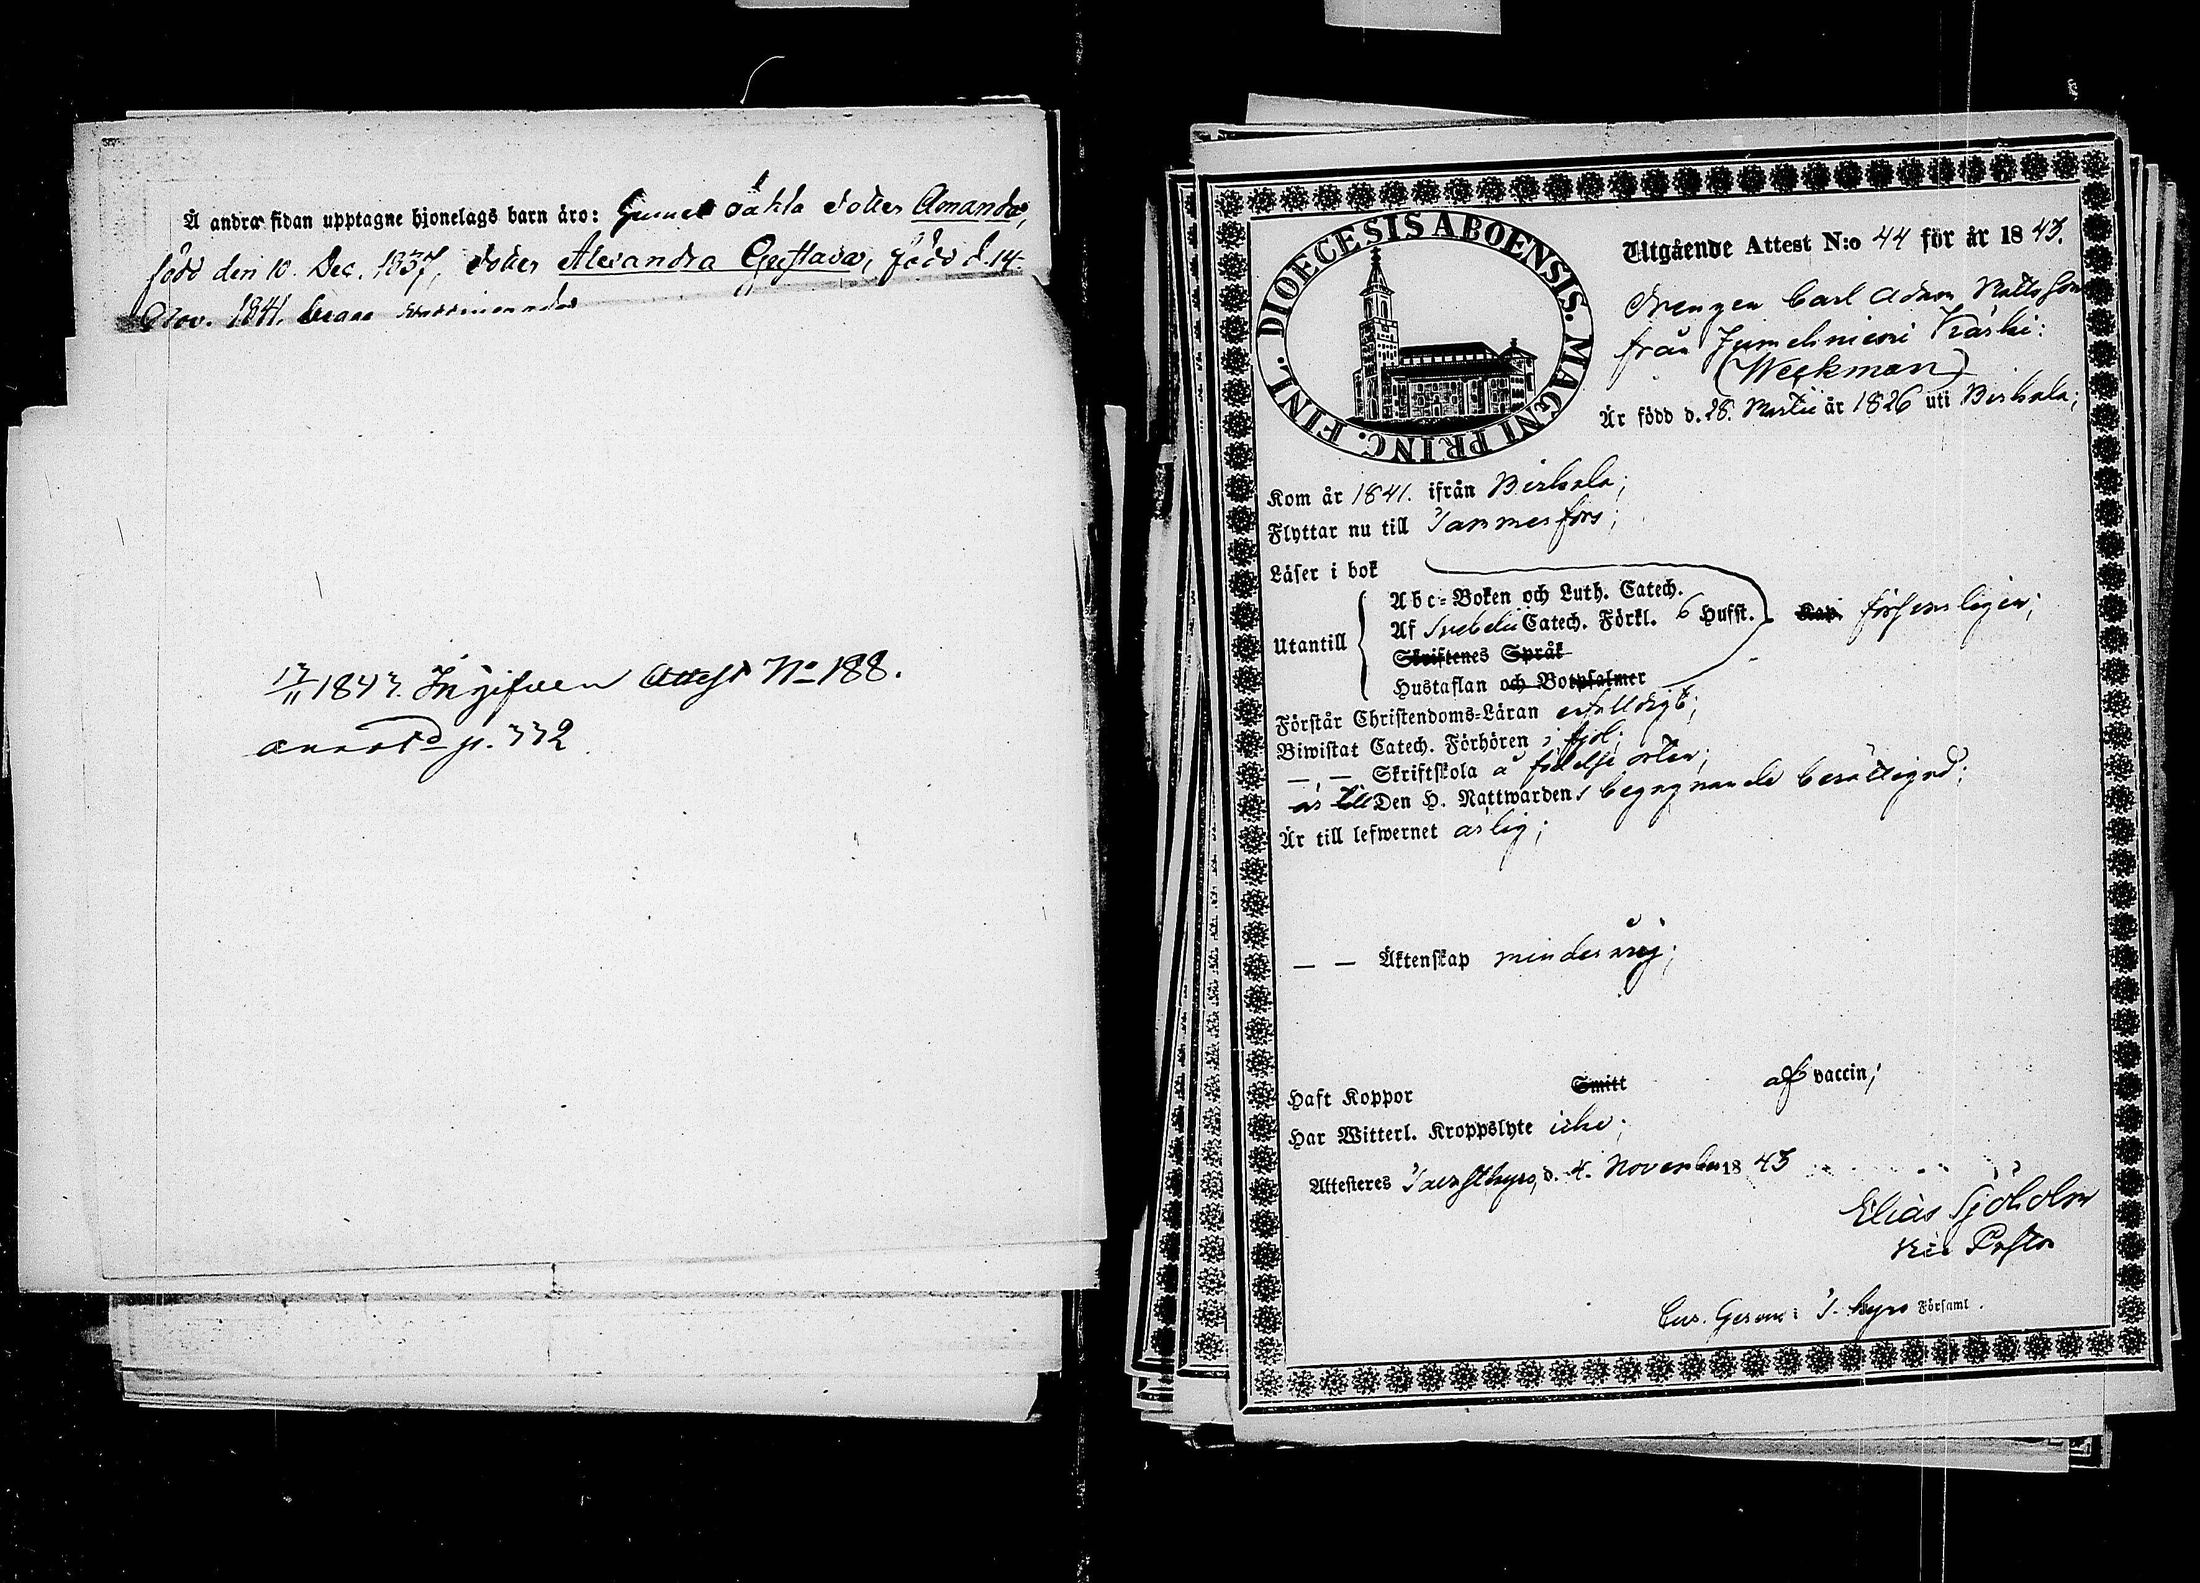 Å andra sidan upptagne hjonelags barn äro: äkta dotter Amanda,
född den 10. Dec. 1837, dotter Alexandra Gustava, född d. 14.
Nov. 1841,
17/11 1843. Ingifven Attest No 188.
p. 332
DIOECESIS ABOENSIS. MAGNI PRINC. FINL.
Utgående Attest N:o 44 för år 1843.
Drengen Carl Adam Mattsson
från Jumeliniemi Kärki:
(Weckman)
Är född d. 28. Martii år 1826 uti Birkala;
Kom år 1841. ifrån Birkala;
Flyttar nu till Tammerfors;
Läser i bok
Utantill
Abc-Boken och Luth. Catech.
Af Svebelii Catech. Förkl. 6 Hufst. Kap. försvarligen;
Skriftenes Språk
Hustaflan och Botpsalmer
Förstår Christendoms-Läran enfalldigt;
Biwistat Catech. Förhören i fjol;
— „ — Skriftskola å födelse orten;
är till Den H. Nattwardens begagnande berättigad;
Är till lefwernet ärlig;
— — Äktenskap minderårig;
Haft Koppor Smitt af vaccin;
Har Witterl. Kroppslyte icke;
Attesteres Tavastkyro, d. 4. November 1843
Elias Sjöholm
Vice Pastor
T. kyro Församl.